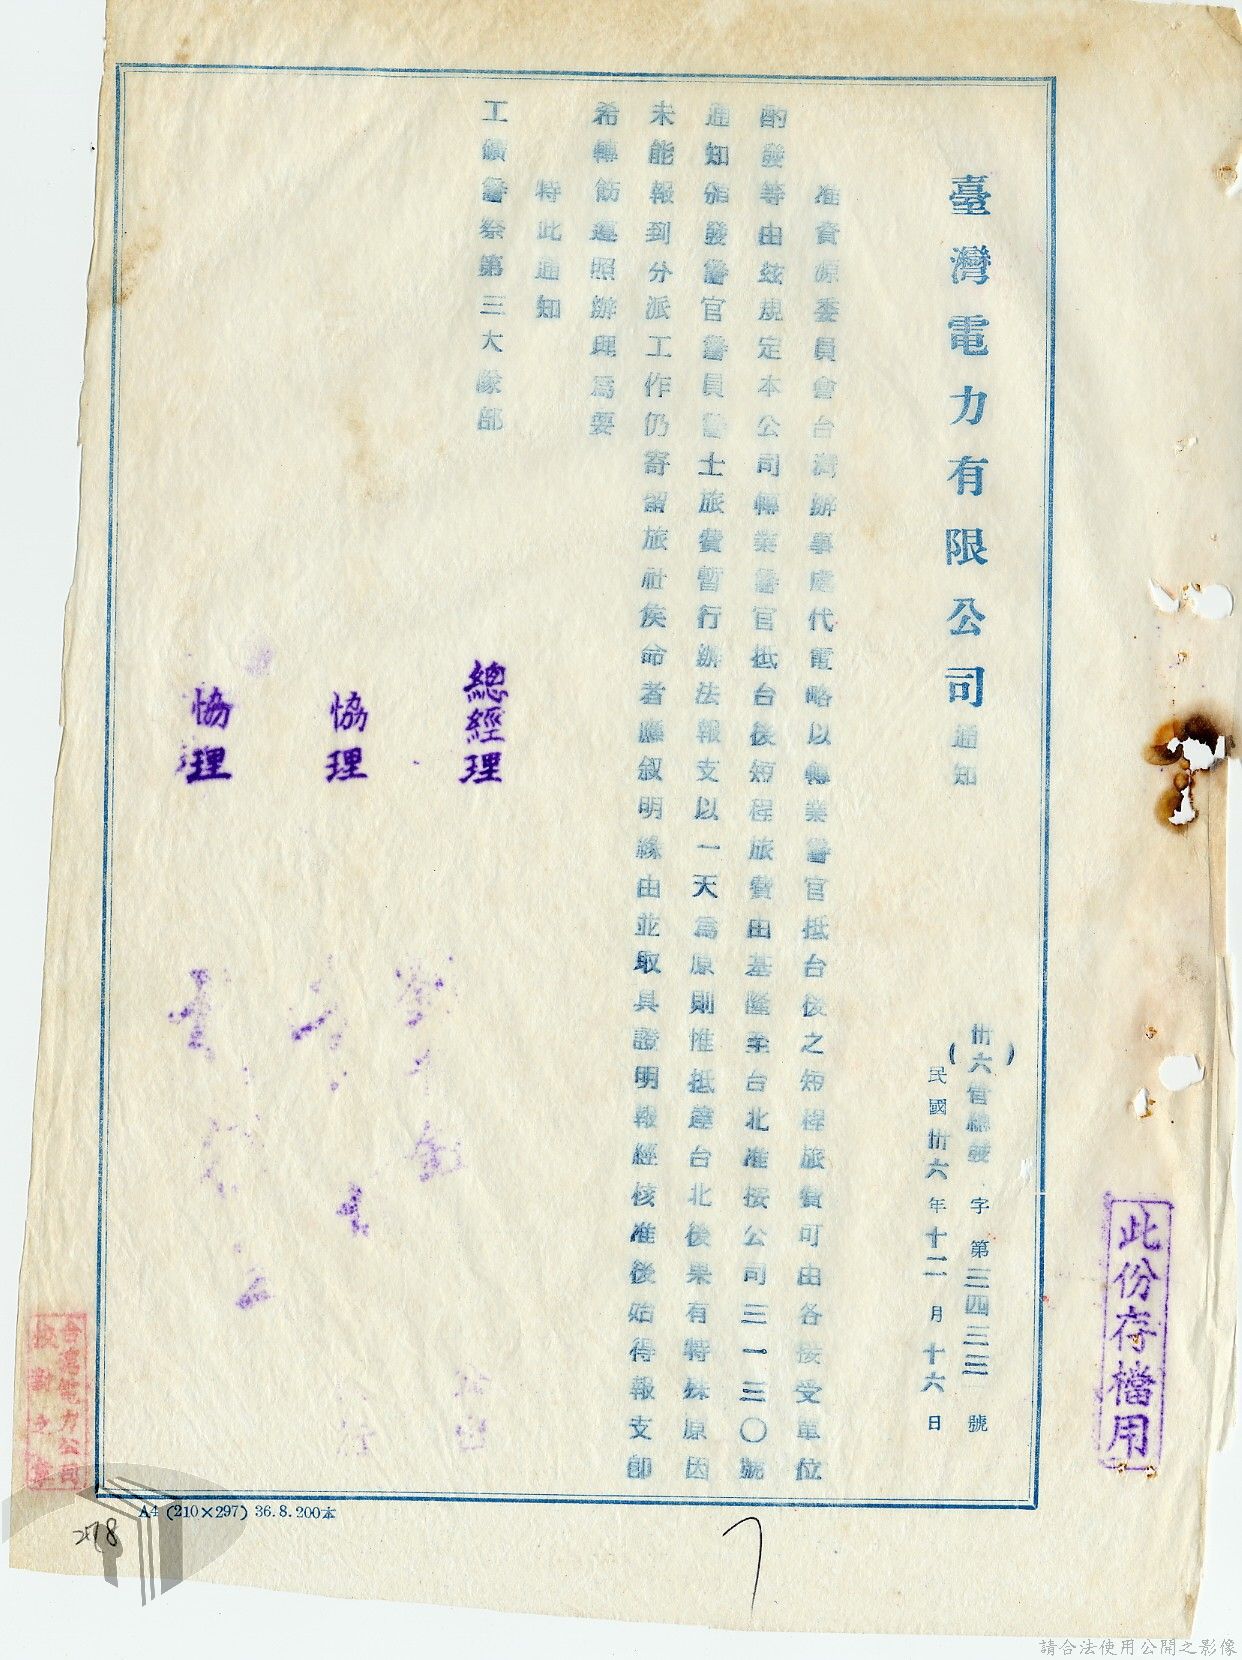 臺灣電力有限公司通知
（卅六）管總發字第三四三三號
民國卅六年十二月十六日
准資源委員會台灣辦事處代電略以轉業警官抵台後之短程旅費可由各接受單位
酌發等由茲規定本公司轉業警官抵台後短程旅費由基隆至台北准按公司三一三〇號
通知頒發警官警員警士旅費暫行辦法報支以一天為原則惟抵達台北後果有特殊原因
未能報到分派工作仍寄留旅社俟命者應叙明緣由並取具證明報經核准後始得報支卽
希轉飭遵照辦理為要
特此通知
工鑛警察第三大隊部
總經理
協理
協理
此份存檔用
台灣電力公司
校對之章
A4 (210×297) 36.8.200本
278
7
請合法使用公開之影像